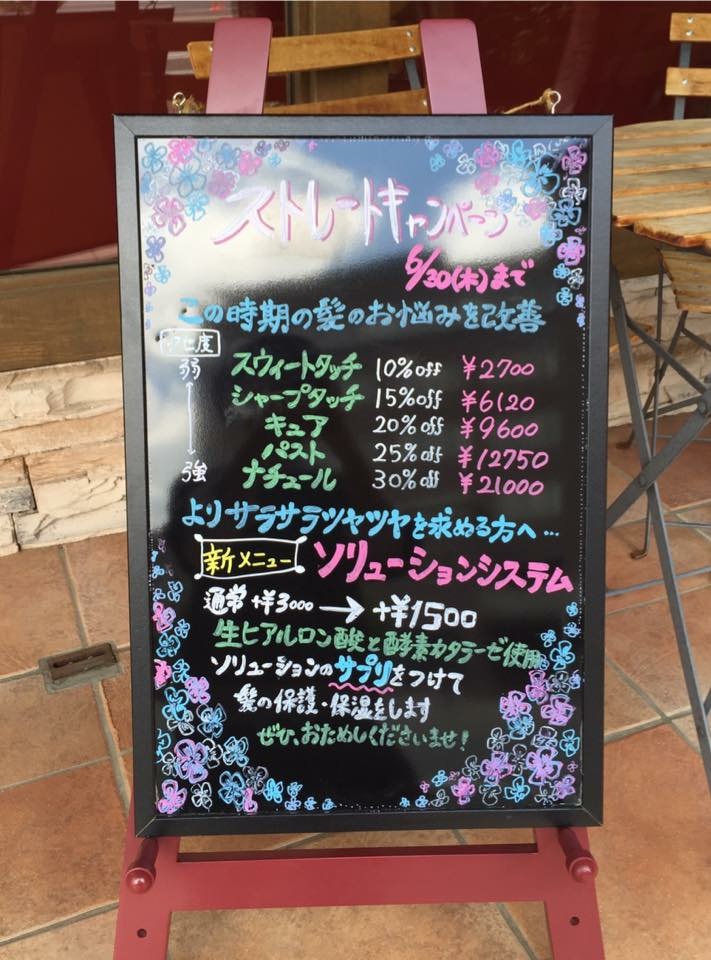 ストレートキャンペーン
6/30(木)まで
この時期の髪のお悩みを改善
クセ度
弱
スウィートタッチ 10%off ¥2700
シャープタッチ 15%off ¥6120
キュア 20%off ¥9600
パスト 25%off ¥12750
強
ナチュール 30%off ¥21000
よりサラサラツヤツヤを求める方へ…
新メニュー ソリューションシステム
通常+¥3000 → +¥1500
生ヒアルロン酸と酵素カタラーゼ使用
ソリューションのサプリをつけて
髪の保護・保湿をします
ぜひ、おためしくださいませ!